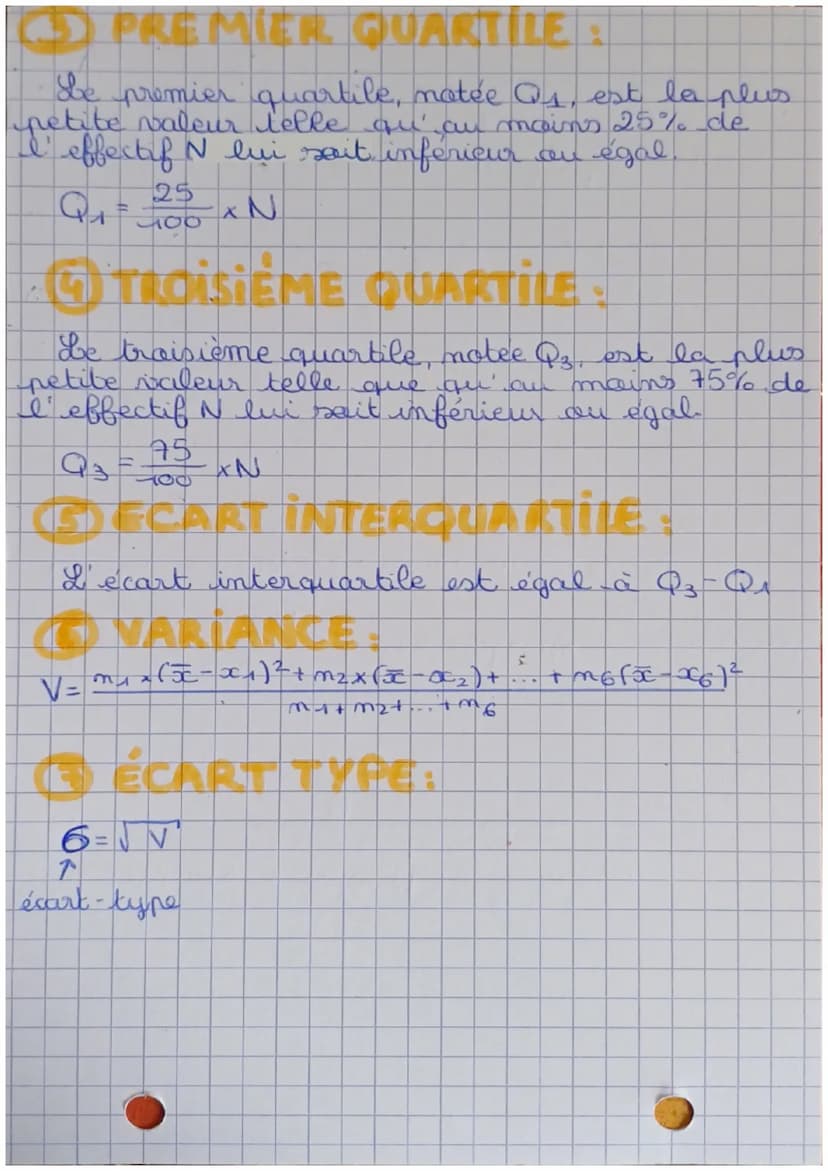 ③ PREMIER QUARTILE :
Le premier quartile, notée Q1, est la plus
petite valeur telle qu'au moins 25% de
l'effectif N lui soit inférieur ou égal.
Q1 = 25/100 × N
④ TROISIÈME QUARTILE :
Le troisième quartile, notée Q3, est la plus
petite valeur telle que qu'au moins 75% de
l'effectif N lui soit inférieur ou égal.
Q3 = 75/100 × N
⑤ ECART INTERQUARTILE :
L'écart interquartile est égal à Q3 - Q1
⑥ VARIANCE :
V = n1 × (x̄ - x1)² + n2 × (x̄ - x2) + ... + n6 (x̄ - x6)²
n1 + n2 + ... + n6
⑦ ÉCART TYPE :
σ = √V
↑
écart-type